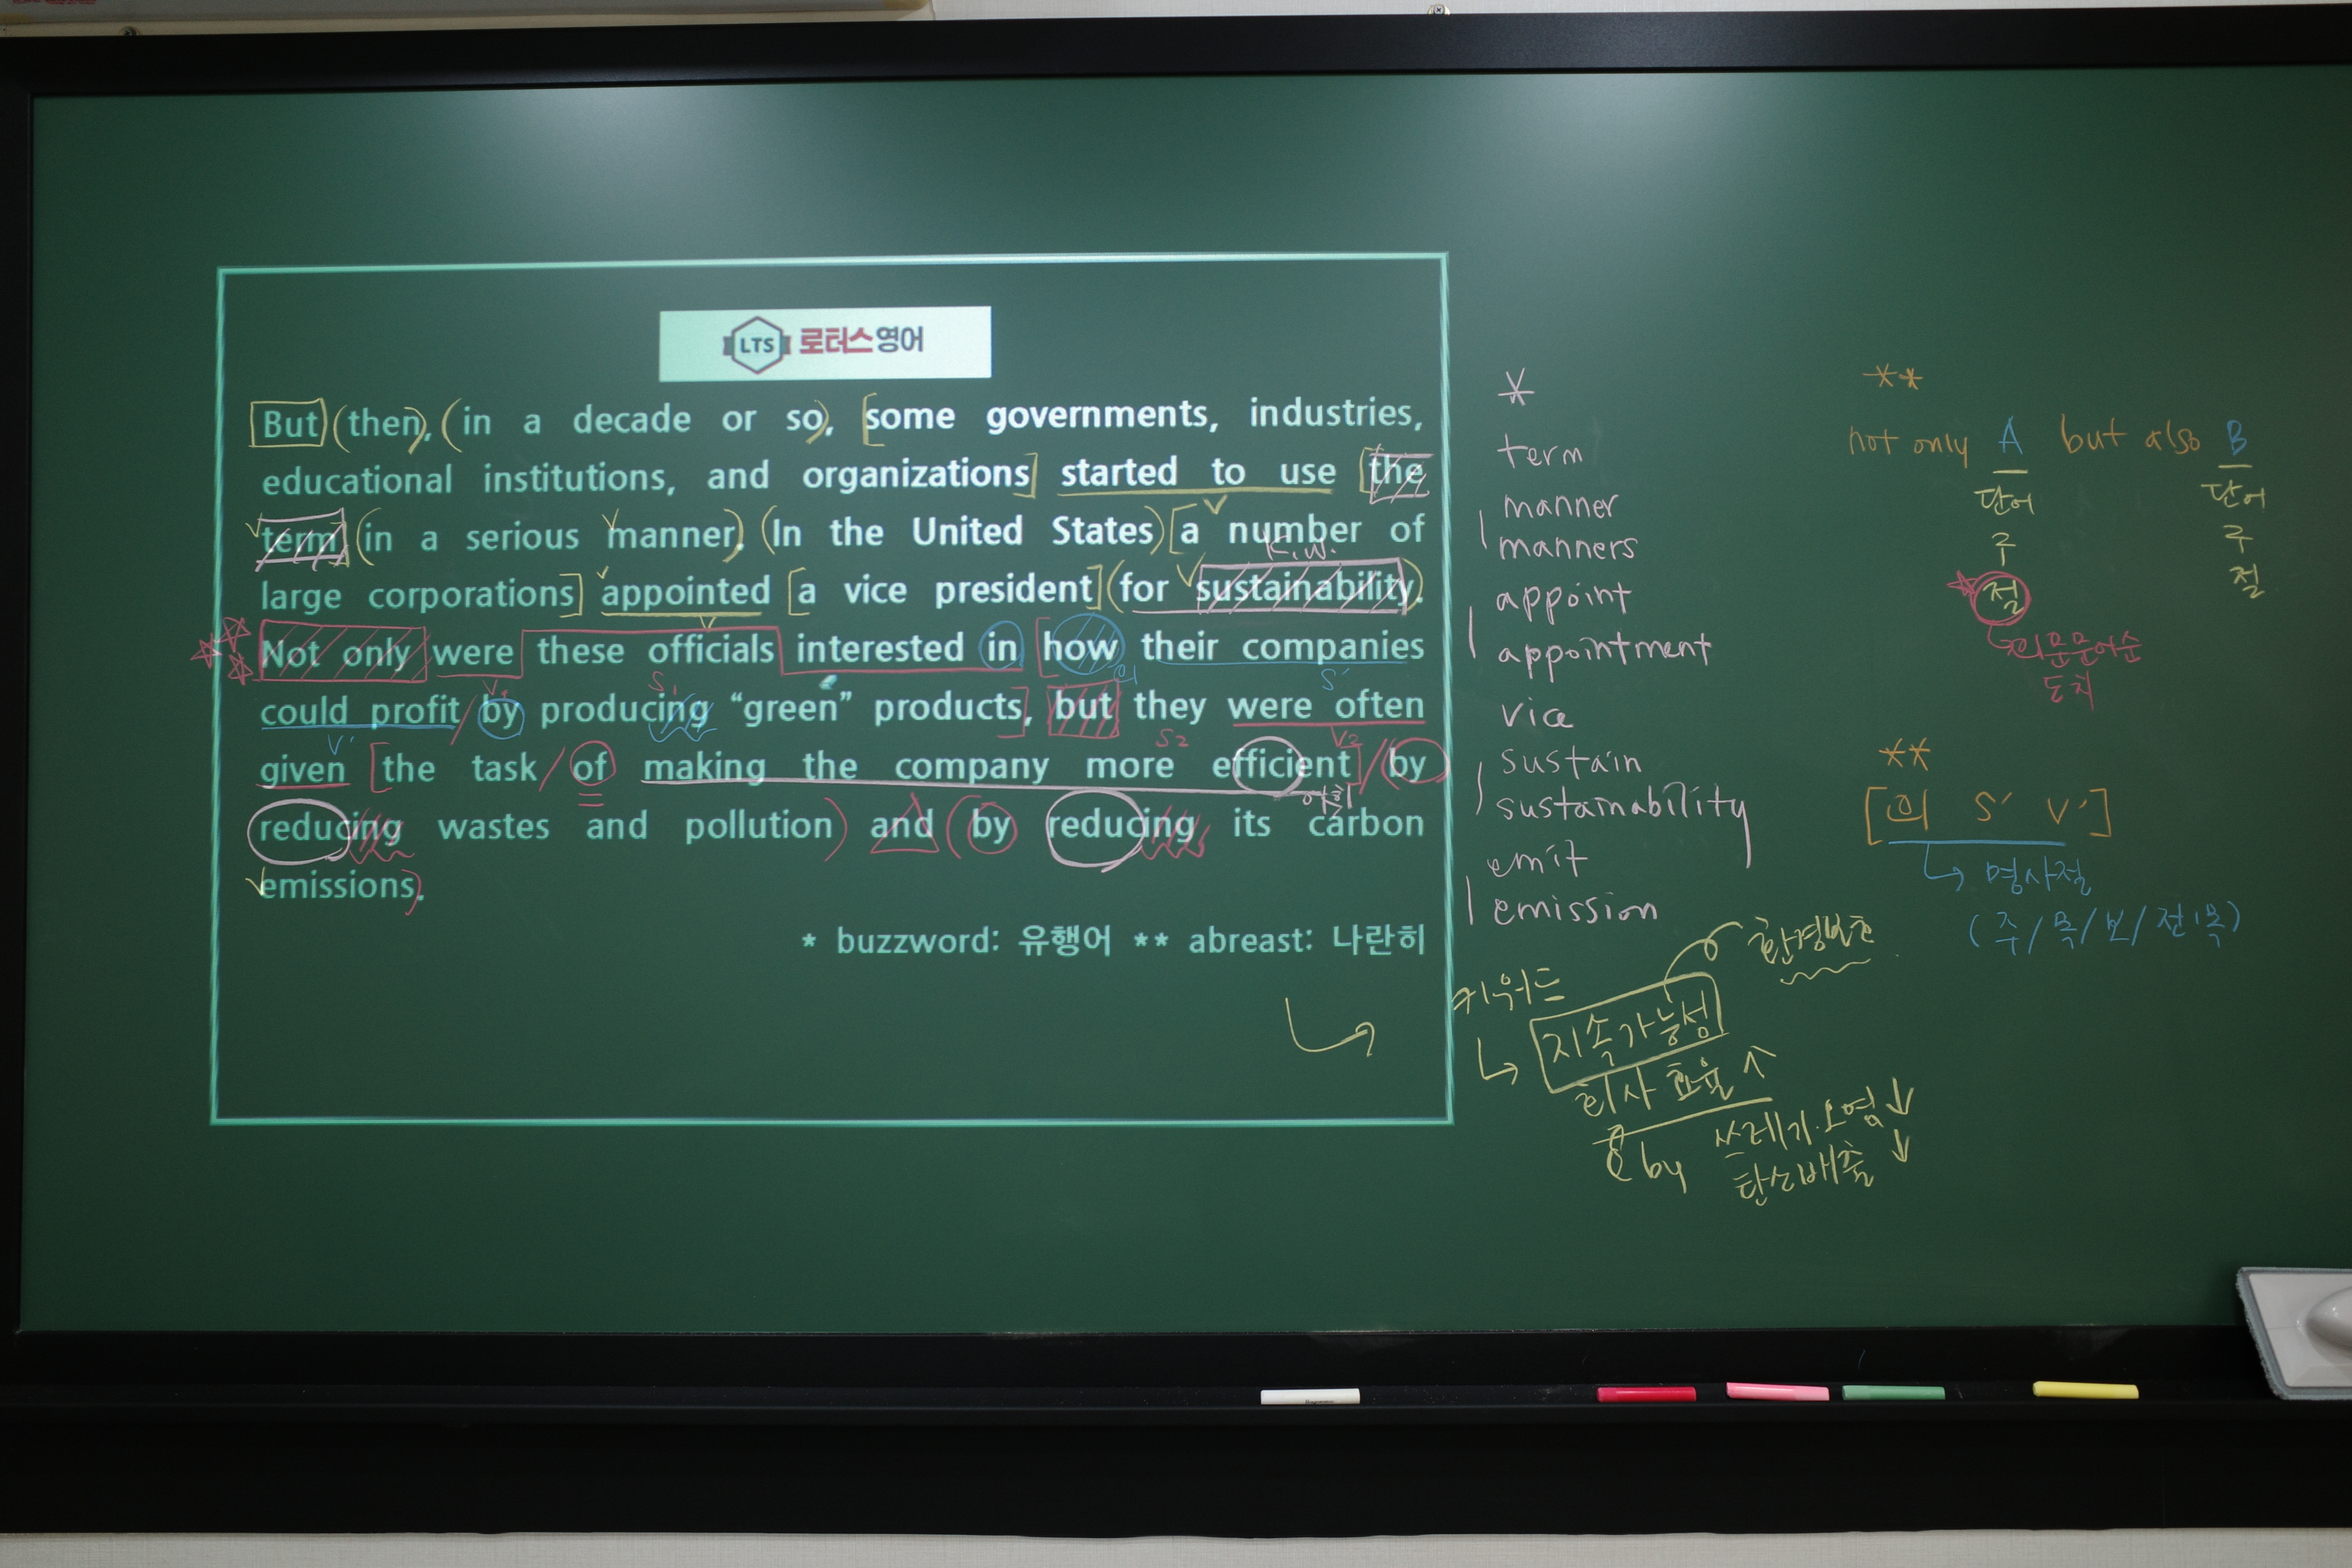 LTS 로터스영어
But then, in a decade or so, some governments, industries,
educational institutions, and organizations started to use the
term in a serious manner. In the United States a number of
K.W.
large corporations appointed a vice president for sustainability.
Not only were these officials interested in how their companies
V₁ S₁ 의 S'
could profit by producing “green” products, but they were often
V' S₂ V₂
given the task of making the company more efficient by
어휘
reducing wastes and pollution and by reducing its carbon
emissions.
* buzzword: 유행어 ** abreast: 나란히
*
term
manner
manners
appoint
appointment
vice
sustain
sustainability
emit
emission
키워드
환경보호
지속가능성
회사 효율 ↑
by 쓰레기·오염 ↓
탄소배출 ↓
**
not only A but also B
단어 단어
구 구
절 절
의문문어순
도치
**
[의 S' V']
명사절
(주/목/보/전·목)